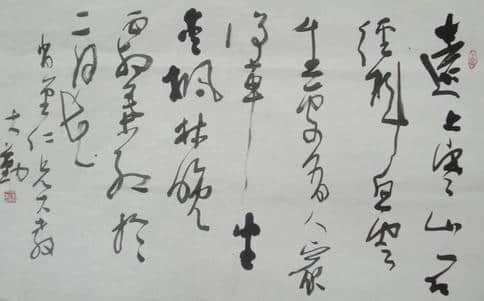 遠上寒山石
徑斜白雲
生處有人家
停車坐
愛楓林晚
霜葉紅於
二月花
仁兄大教
大勤